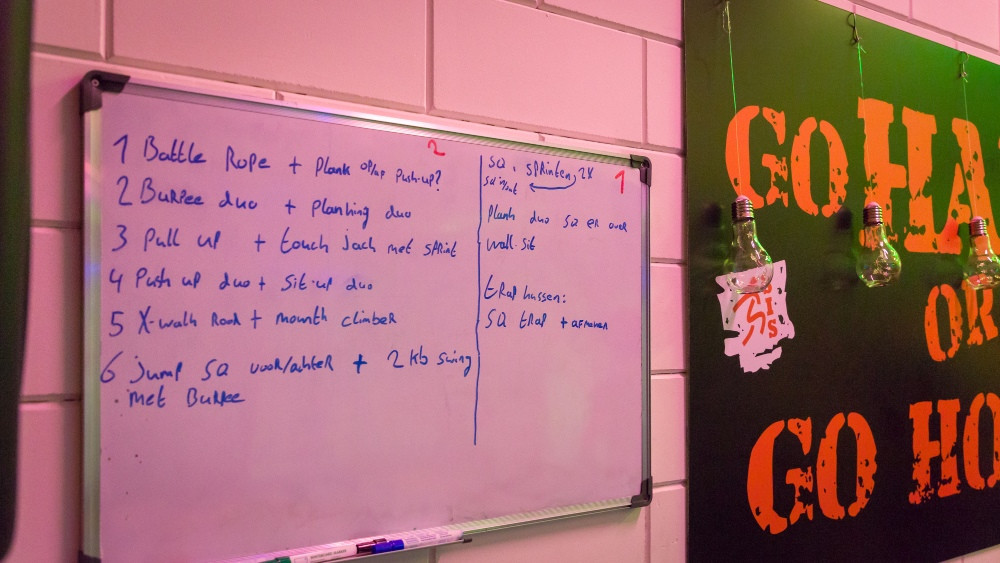 2
1 Battle Rope + Plank op/op Push-up?
2 Burpee duo + Planking duo
3 Pull up + touch jack met sprint
4 Push up duo + Sit-up duo
5 X-walk Rood + mounth climber
6 jump sq voor/achter + 2 kb swing
met Burpee
1
SQ. sprinten, 2x
sq in/out
Plank duo sq er over
wall-sit
trap kussen:
SQ trap + afmaken
GO HA
OR
GO HO